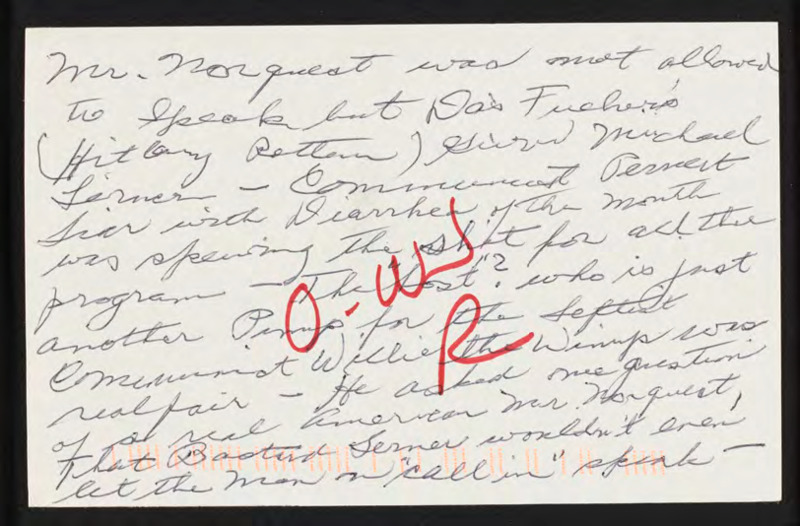 Mr. Norquest was not allowed
to Speak but Das Fueher's
(Hitlary Rottem) Guru Michael
Lerner - Communist Pervert
Liar with Diarrhea of the month
was spewing the shit for all the
program - The "host"? who is just
another Pimp for the leftest
Communist Willie the Wimp was
real fair - He asked one question
of a real American Mr. Norquest,
that Basted Lerner wouldn't even
let the man on "call in" speak -
O-WW
R